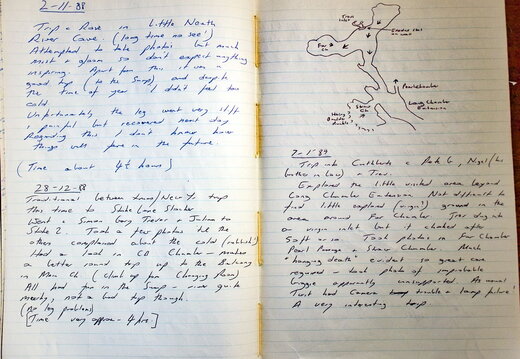 2-11-88
Trip + Rose in Little Neath
River Cave. (long time no see!)
Attempted to take photos but much
mist + gloom so don't expect anything
inspiring. Apart from this it was a
good trip (to the Sump) and despite
the time of year I didn't feel too
cold.
Unfortunately the leg went very stiff
+ painful but recovered next day
Regarding this I don't know how
things will fare in the future.
(Time about 4½ hours)
28-12-88
Traditional between Xmas/New Yr trip
this time to Stoke Lane Slocker
Went + Simon Gary Trevor + Julian to
Stoke 2. Took a few photos til the
others complained about the cold (rabbits!)
Had a look in CD Chamber - number
a better round trip up to the Balcony
in Main Ch (climb up from Changing Room)
All had fun in the Sump - river quite
meaty, not a bad trip though.
(No leg problems)
[Time very approx - 4 hrs.]
Far Ch
Pearl Chamber
Long Chamber
Extension
Strong Ch
7-1-89
Trip into Cuthberts + Rob G, Nigel (his
brother in law) + Trev.
Explored the little visited area beyond
Long Chamber Extension. Not difficult to
find little explored (virgin?) ground in the
area around Far Chamber. Trev dug into
a virgin inlet but it choked after
5oft or so. Took photos in Far Chamber
Pearl Passage + Chamber. Much
"hanging death" evident so great care
required - had photo of improbable
biggie apparently unsupported. As usual
Twit had Camera trouble + lamp failure!
A very interesting trip.